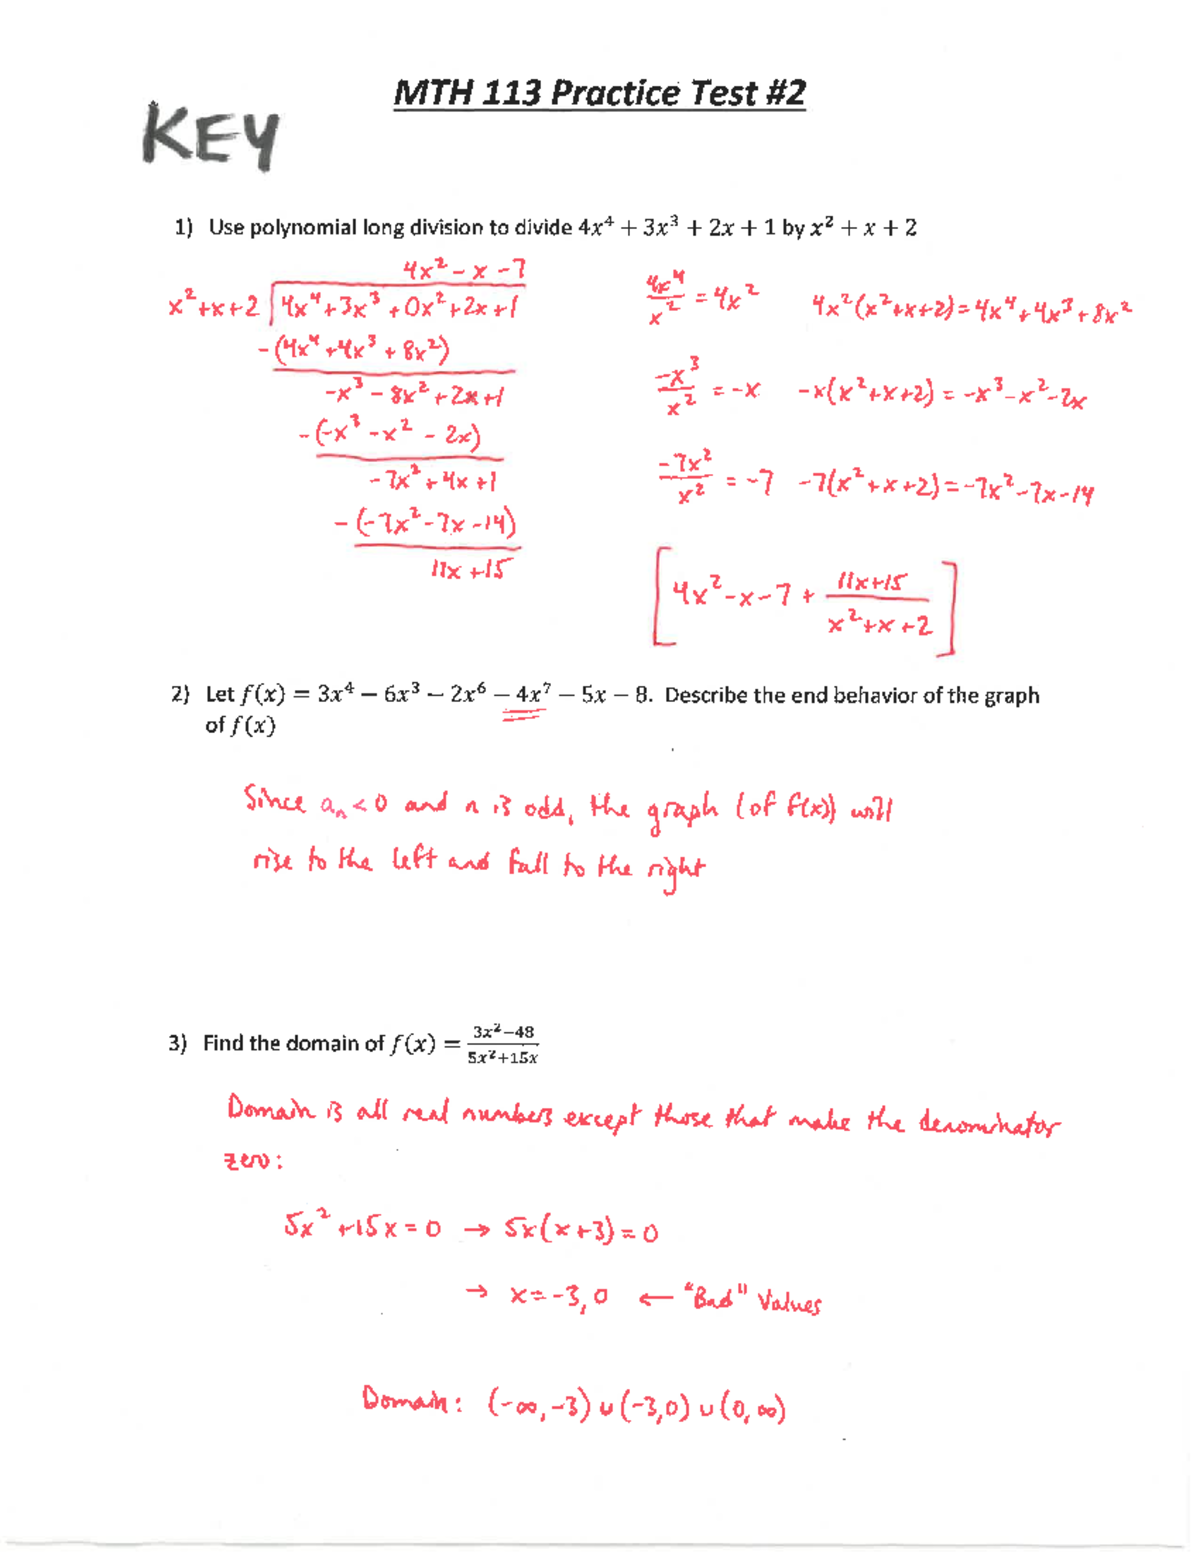 MTH 113 Practice Test #2
KEY
1) Use polynomial long division to divide 4x⁴ + 3x³ + 2x + 1 by x² + x + 2
4x² - x - 7
x²+x+2 | 4x⁴+3x³+0x²+2x+1
-(4x⁴+4x³+8x²)
-x³-8x²+2x+1
-(-x³-x²-2x)
-7x²+4x+1
-(-7x²-7x-14)
11x+15
4x⁴/x² = 4x² 4x²(x²+x+2)=4x⁴+4x³+8x²
-x³/x² = -x -x(x²+x+2) = -x³-x²-2x
-7x²/x² = -7 -7(x²+x+2)=-7x²-7x-14
[4x²-x-7+ 11x+15/x²+x+2]
2) Let f(x) = 3x⁴ − 6x³ − 2x⁶ − 4x⁷ − 5x − 8. Describe the end behavior of the graph
of f(x)
Since aₙ<0 and n is odd, the graph (of f(x)) will
rise to the left and fall to the right
3) Find the domain of f(x) = 3x²−48/5x²+15x
Domain is all real numbers except those that make the denominator
zero:
5x²+15x=0 → 5x(x+3)=0
→ x=-3,0 ← "Bad" Values
Domain: (-∞,-3)∪(-3,0)∪(0,∞)